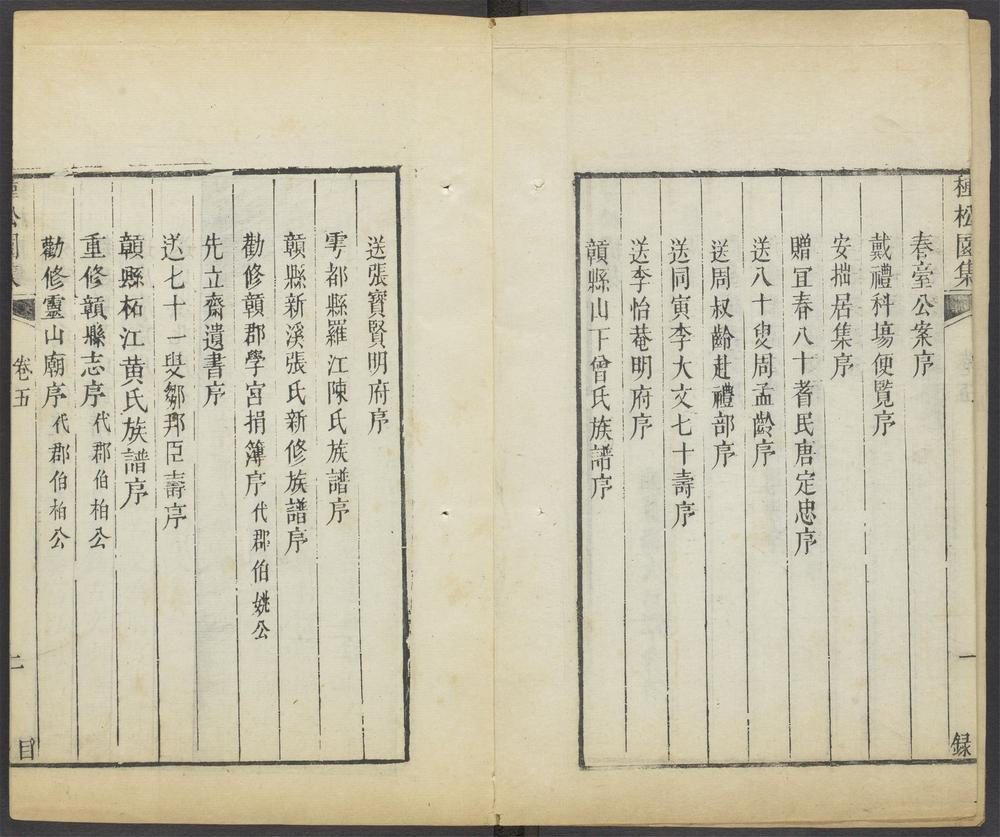 種松園集
一
録
春臺公案序
戴禮科塲便覧序
安拙居集序
贈宜春八十耆民唐定忠序
送八十叟周孟齡序
送周叔齡赴禮部序
送同寅李大文七十壽序
送李怡菴明府序
贛縣山下曾氏族譜序
送張寶賢明府序
雩都縣羅江陳氏族譜序
贛縣新溪張氏新修族譜序
勸修贛郡學宮捐簿序代郡伯姚公
先立齋遺書序
送七十一叟鄒邦臣壽序
贛縣柘江黄氏族譜序
重修贛縣志序代郡伯柏公
勸修靈山廟序代郡伯柏公
卷五
二
目